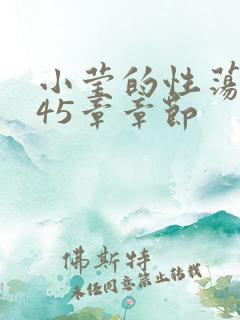 小莹的性荡
45章章节
佛斯特
未经同意禁止转载